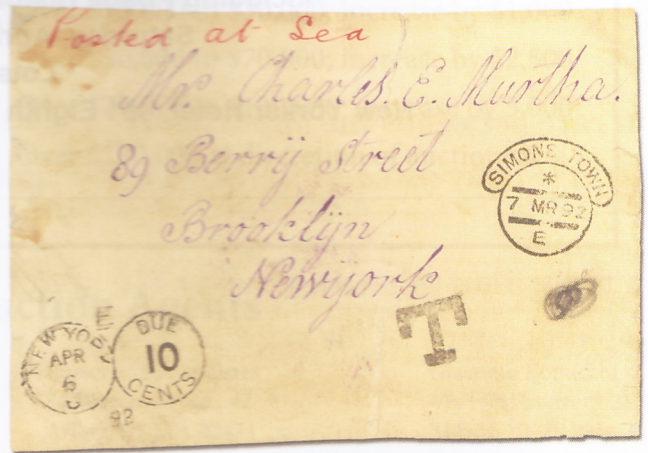 Posted at Sea
Mr. Charles. E. Murtha.
89 Berrÿ Street
Brooklÿn
Newÿork
SIMONS TOWN
*
7 MR 92
E
T
NEW YORK
APR
6
92
DUE
10
CENTS